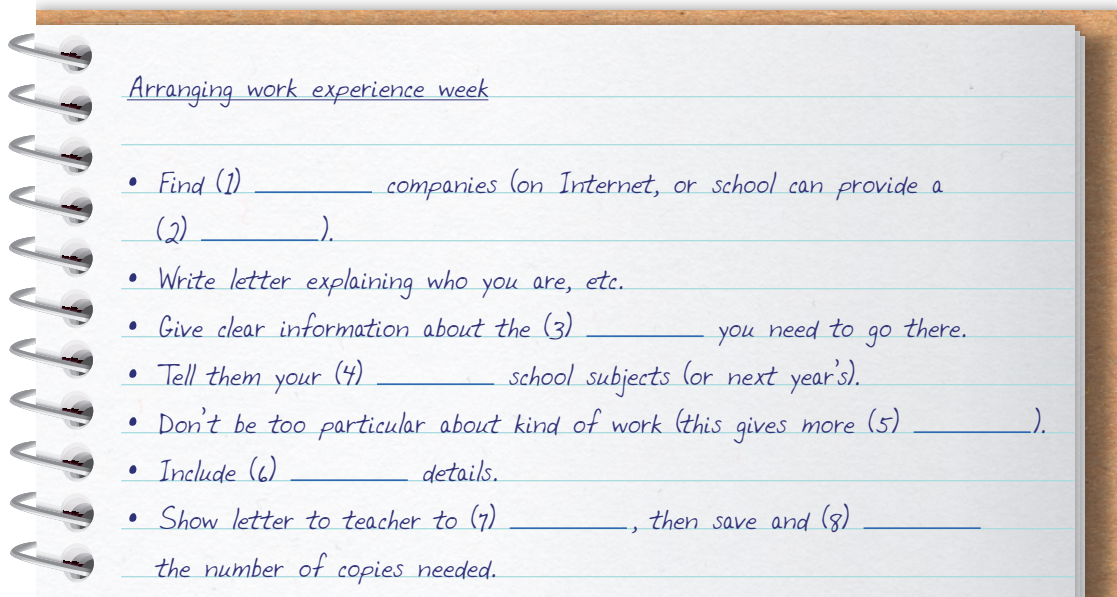 Arranging work experience week
• Find (1) ________ companies (on Internet, or school can provide a
(2) ________).
• Write letter explaining who you are, etc.
• Give clear information about the (3) ________ you need to go there.
• Tell them your (4) ________ school subjects (or next year's).
• Don't be too particular about kind of work (this gives more (5) ________).
• Include (6) ________ details.
• Show letter to teacher to (7) ________, then save and (8) ________
the number of copies needed.